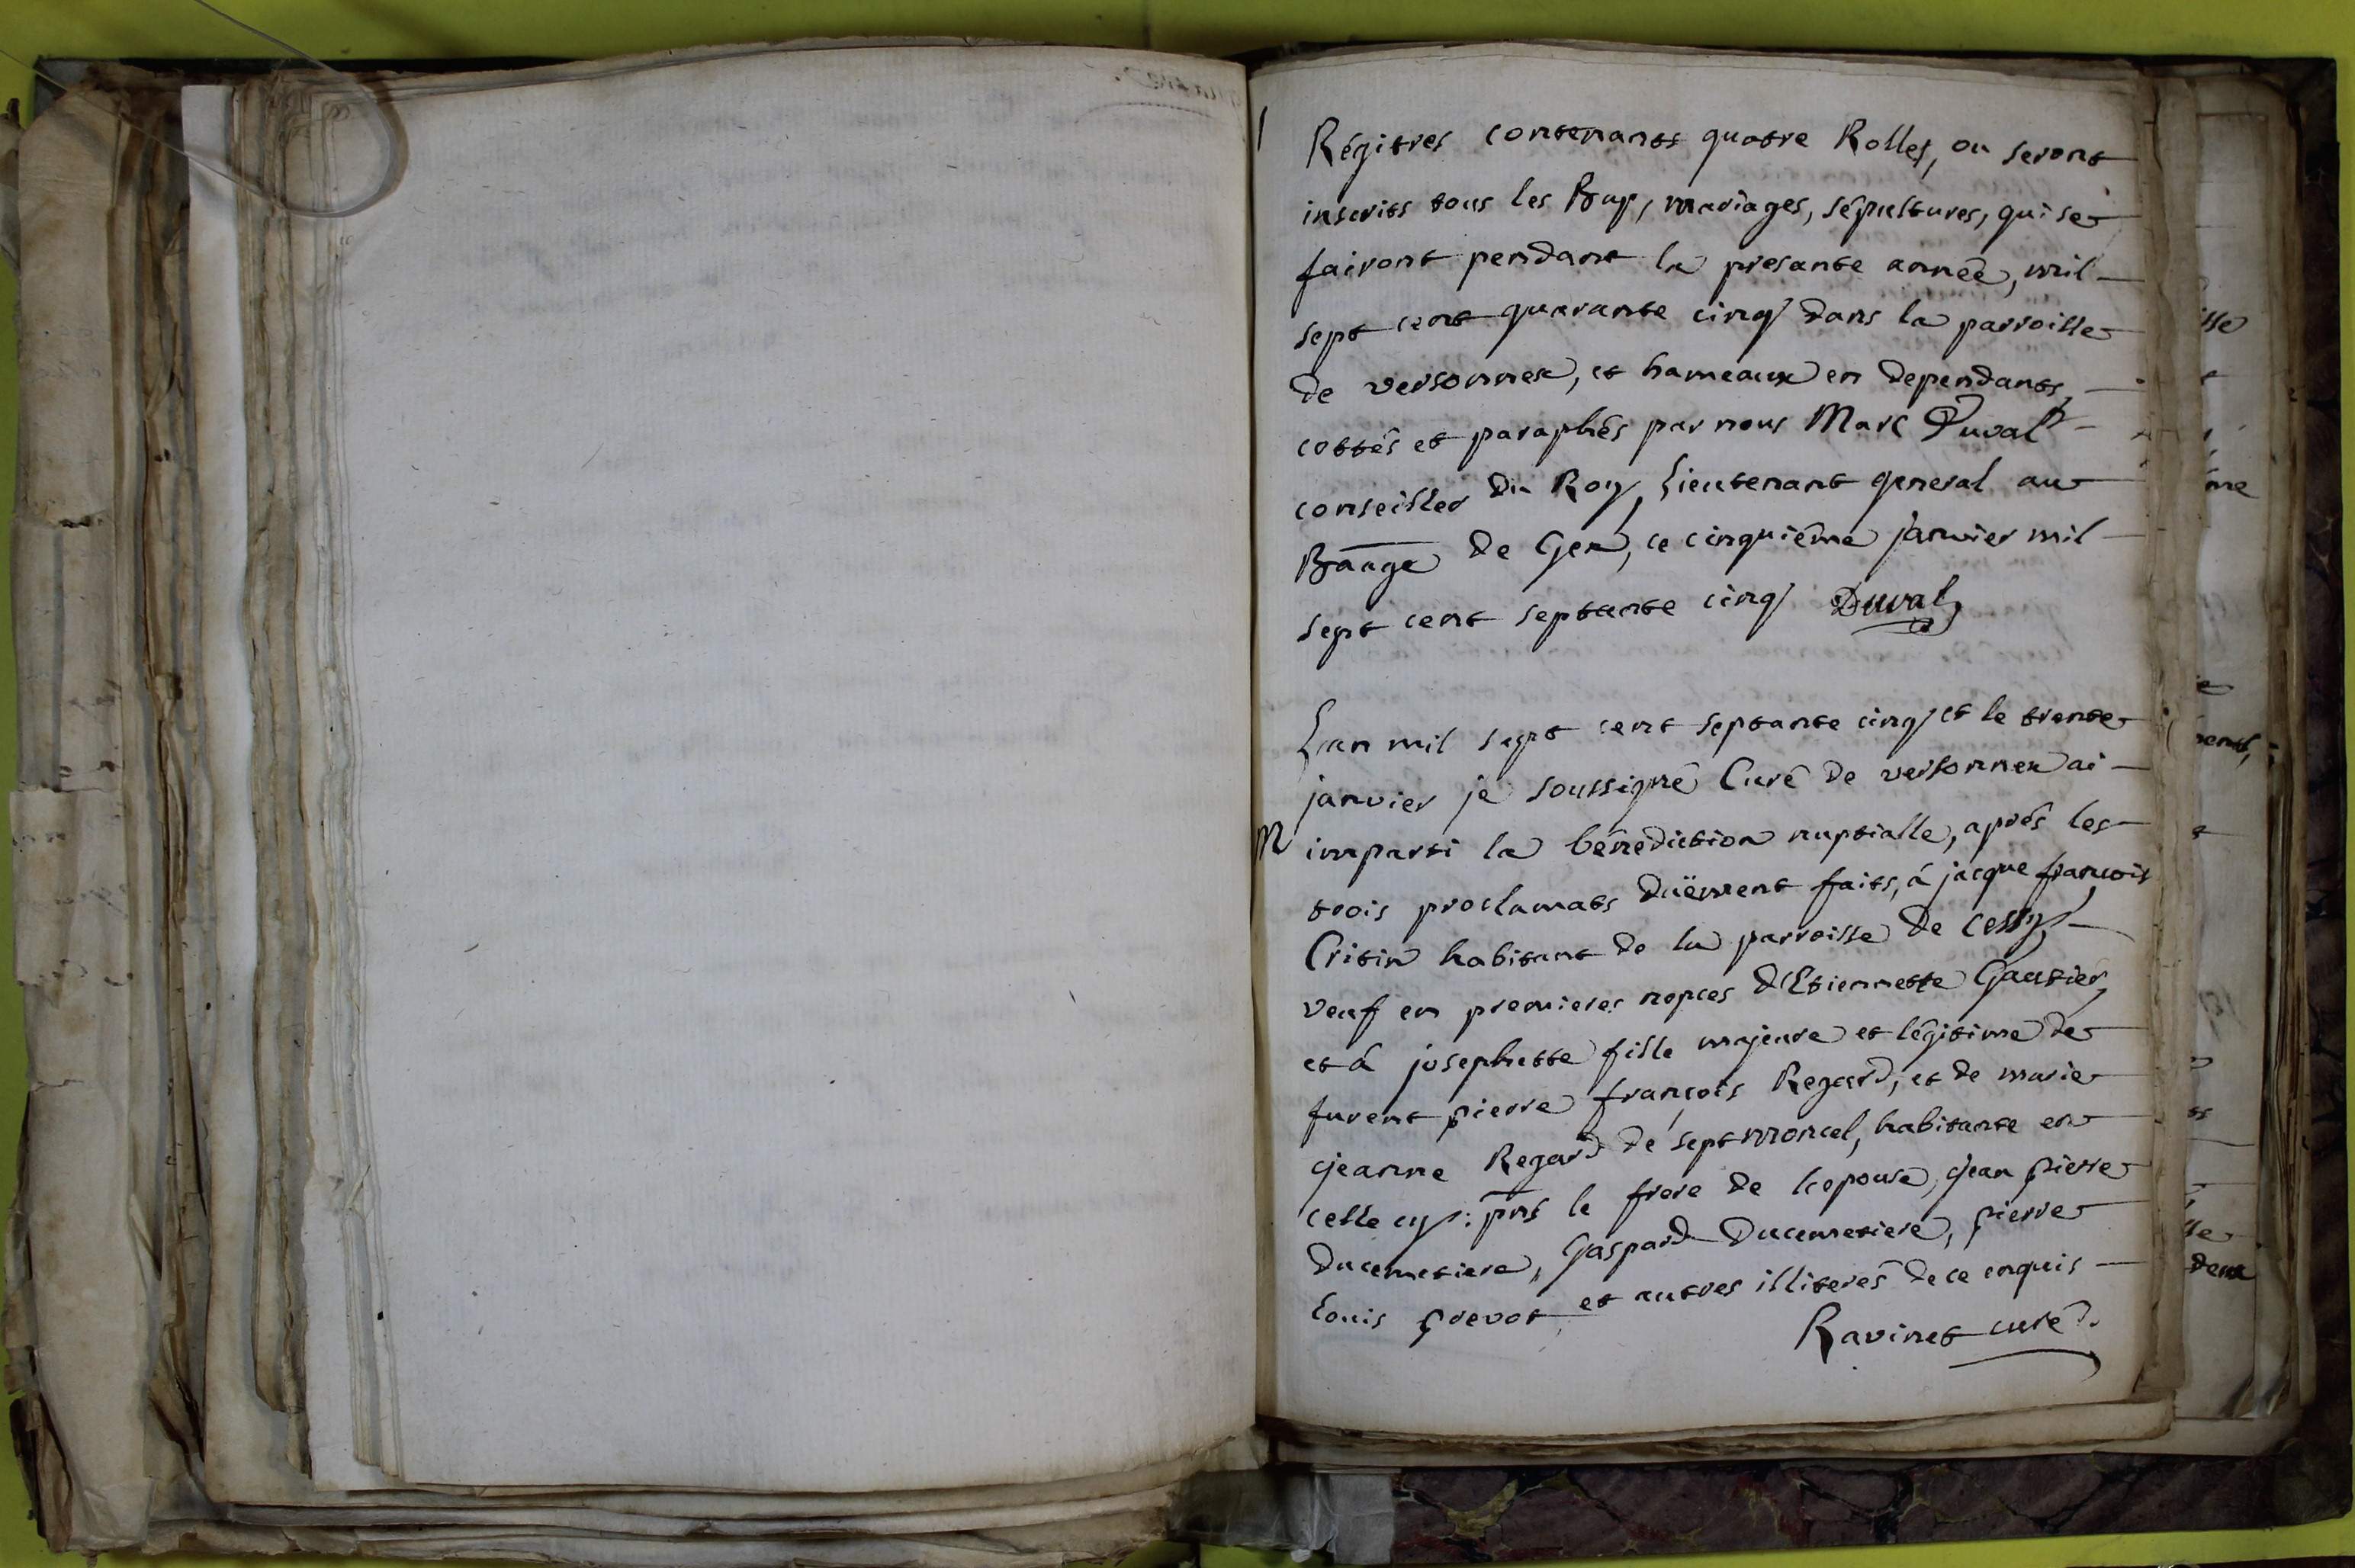 1
Régitres contenants quatre Rolles, ou seront
inscrits tous les Bap, mariages, sépultures, qui se
fairont pendant la presante année, mil
sept cent quarante cinq dans la parroisse
de versonnex, et hameaux en dependants,
cottés et paraphés par nous Marc Duval
conseiller du Roy, Lieutenant general au
Baage de Gex, ce cinquiême janvier mil
sept cent septante cinq Duval
Lan mil sept cent septante cinq et le trente
janvier je soussigné Curé de versonnex ai
M imparti la bénédiction nuptialle, aprés les
trois proclamats duëment faits, á jacque françois
Critin habitant de la parroisse de cessy,
veuf en premieres nopces d'Etiennette Gautier,
et á josephette fille majeure et légitime de
furent pierre françois Regard, et de marie
jeanne Regard de septmoncel, habitante en
celle cy: pnts le frere de lepouse, jean pierre
Ducimetiere, Gaspard Ducimetiere, pierre
Louis prevot et autres illiterés de ce enquis
Ravinet curé.